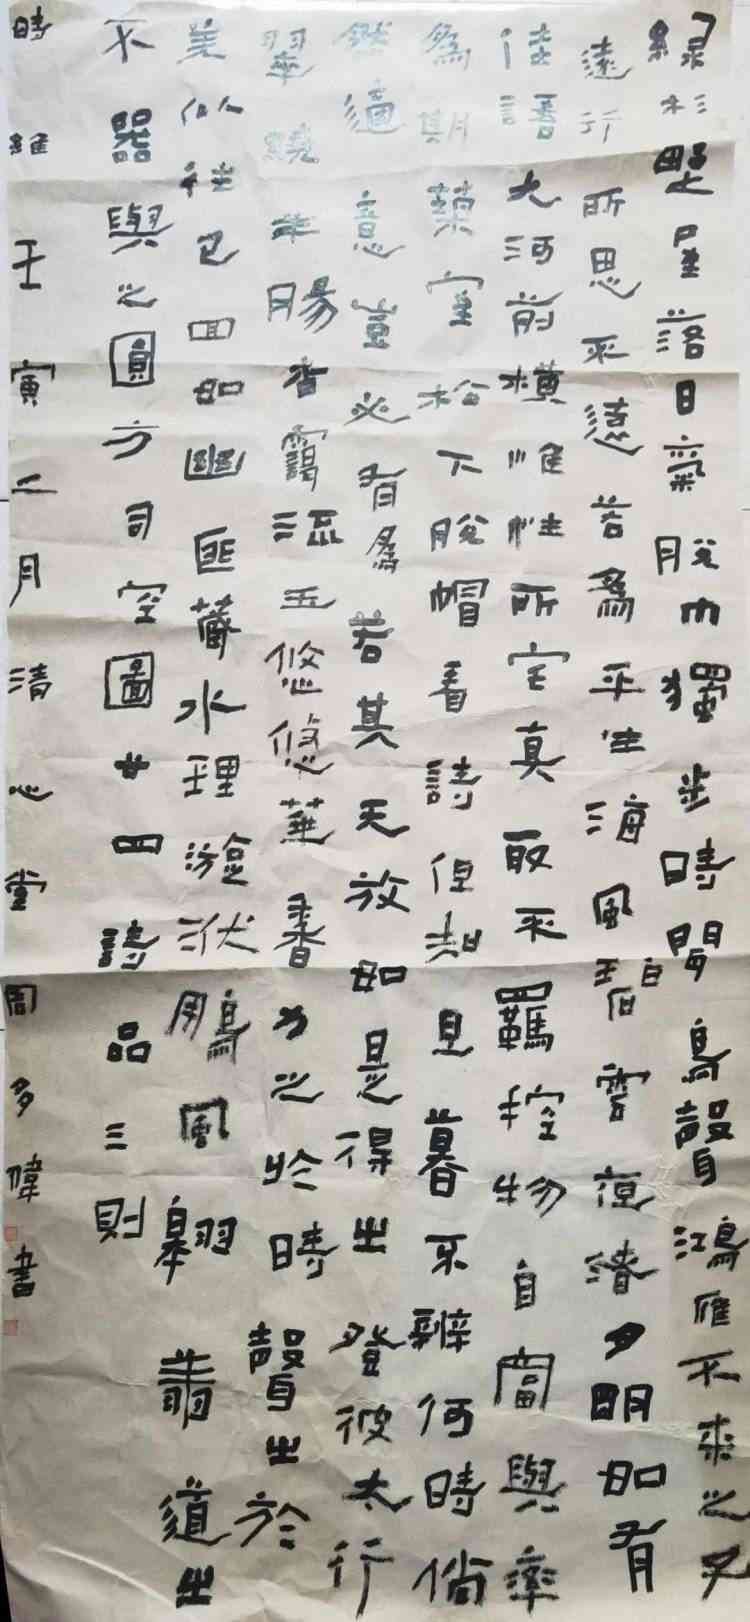 綠杉野屋落日氣脫巾獨步時聞鳥聲鴻雁不來之子
遠行所思不遠若爲平生海風碧雲夜渚月明如有
佳語大河前橫惟性所宅真取不羈控物自富與率
爲期築室松下脫帽看詩但知旦暮不辨何時倘
然適意豈必有爲若其天放如是得之登彼太行
翠繞羊腸杳靄流玉悠悠花香力之於時聲之於
羌似往已回如幽匪藏水理漩洑鵬風翱翔道
不器與之圓方司空圖廿四詩品三則
時維壬寅二月清心堂周多偉書